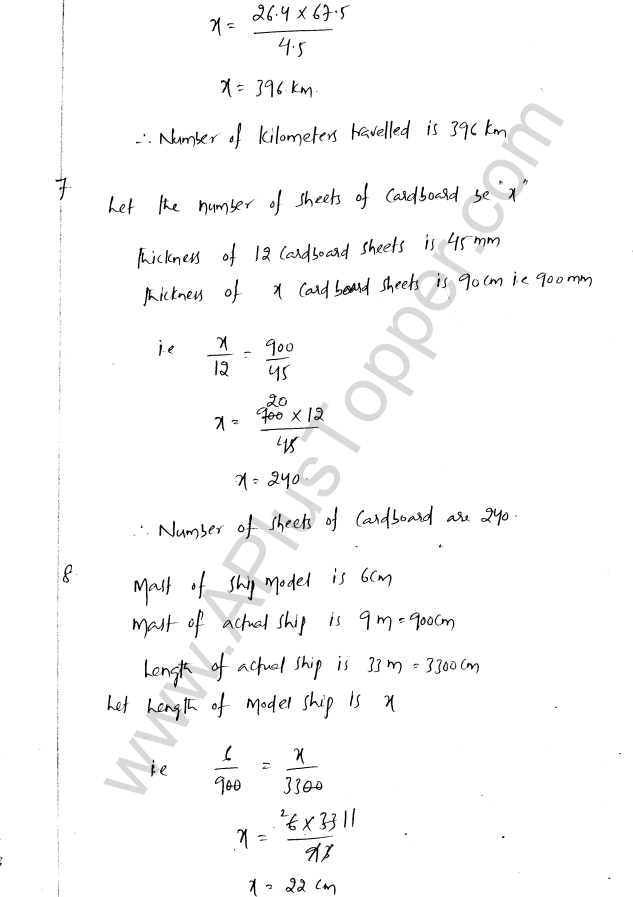 x = 26.4 × 67.5 / 4.5
x = 396 km.
∴ Number of kilometers travelled is 396 km
7. Let the number of sheets of cardboard be "x"
thickness of 12 cardboard sheets is 45 mm
thickness of x cardboard sheets is 90 cm i.e 900 mm
i.e x/12 = 900/45
20
x = 900 × 12 / 45
x = 240.
∴ Number of sheets of cardboard are 240.
8. Mast of ship model is 6cm
Mast of actual ship is 9 m = 900cm
Length of actual ship is 33 m = 3300cm
Let Length of model ship is x
i.e 6/900 = x/3300
x = ²6 × 33 11 / 93
x = 22 cm
www.APlusTopper.com